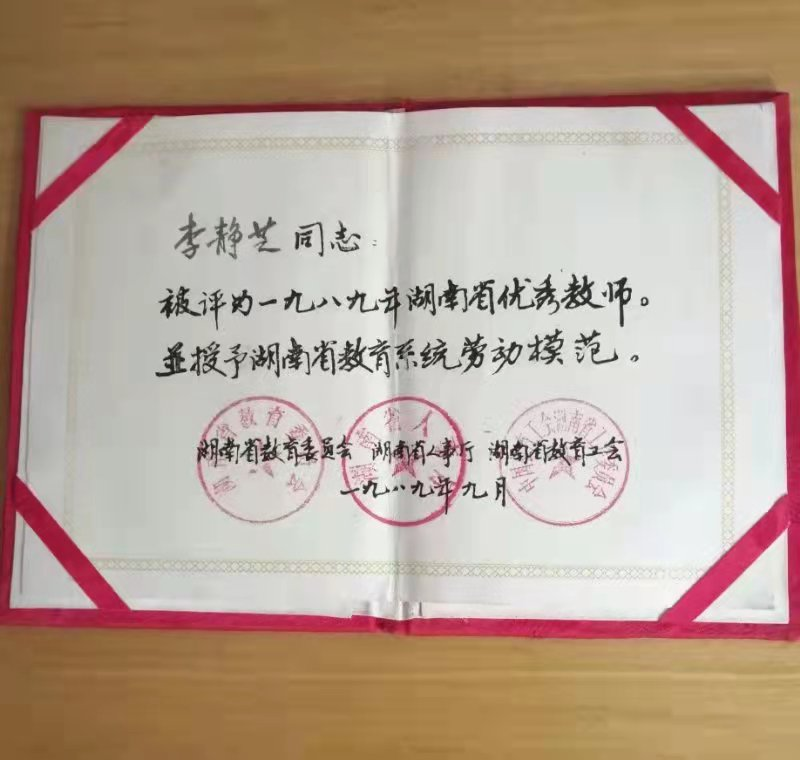 李静芝同志:
被评为一九八九年湖南省优秀教师。
並授予湖南省教育系统劳动模范。
湖南省教育委员会 湖南省人事厅 湖南省教育工会
一九八九年九月